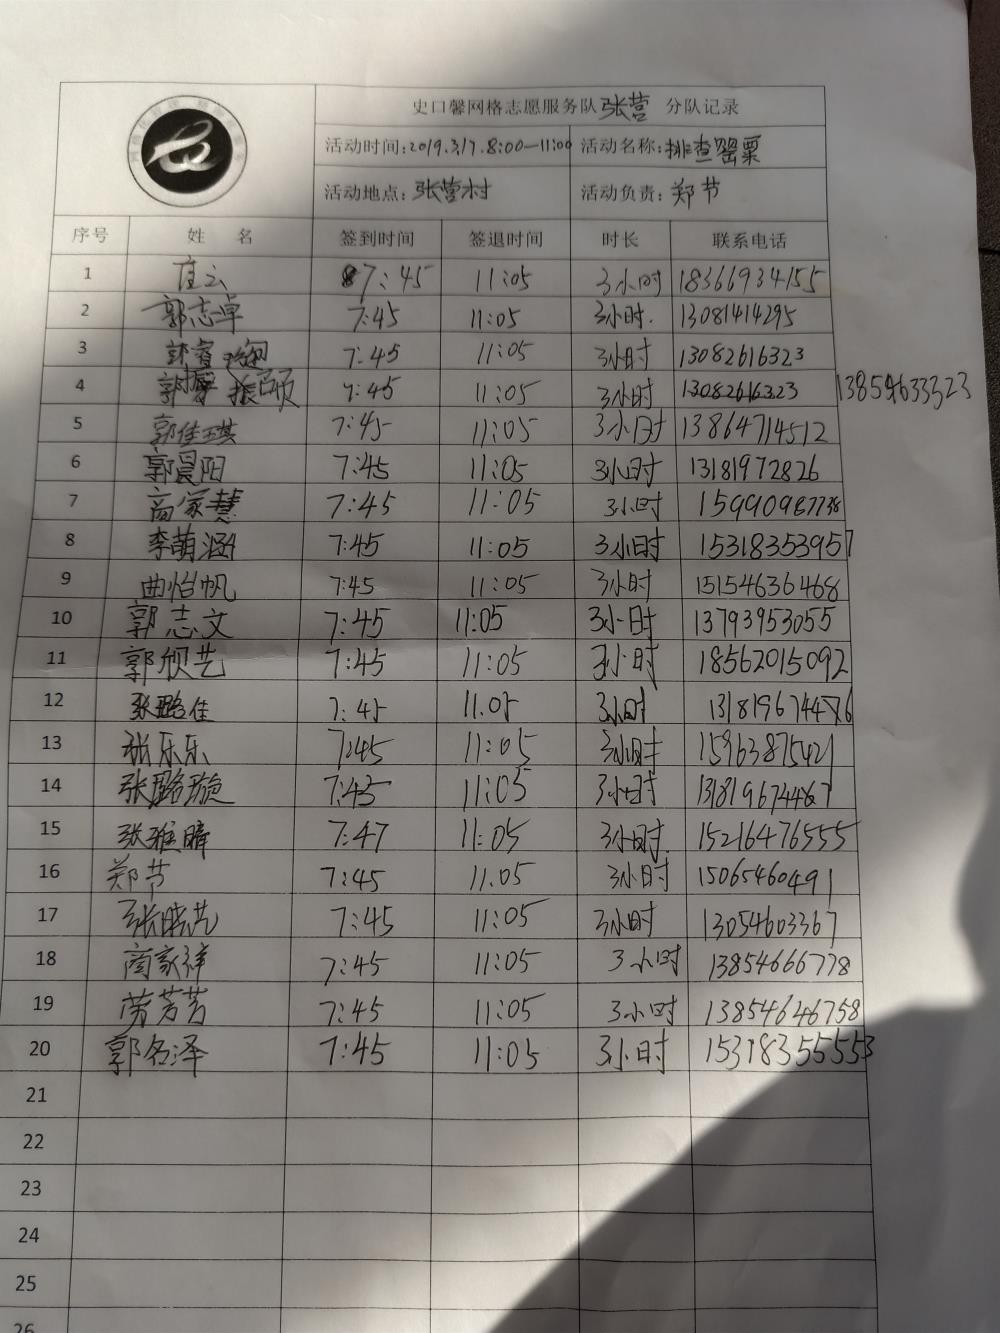 史口馨网格志愿服务队张营 分队记录
活动时间:2019.3.17.8:00—11:00 活动名称:排查罂粟
活动地点:张营村 活动负责:郑节
序号 姓 名 签到时间 签退时间 时长 联系电话
1 崔云 7:45 11:05 3小时 18366934155
2 郭志卓 7:45 11:05 3小时. 13081414295
3 7:45 11:05 3小时 13082616323
4 7:45 11:05 3小时 13082616323 13854633323
5 郭佳琪 7:45 11:05 3小时 13864714512
6 郭晨阳 7:45 11:05 3小时 13181972826
7 商家慧 7:45 11:05 3小时 15990987738
8 李萌涵 7:45 11:05 3小时 15318353957
9 曲怡帆 7:45 11:05 3小时 15154636468
10 郭志文 7:45 11:05 3小时 13793953055
11 郭颀艺 7:45 11:05 3小时 18562015092
12 张璐佳 7:45 11.05 3小时
13 张乐乐 7:45 11:05 3小时 15963875421
14 张璐璇 7:45 11:05 3小时 131819674467
15 张雅晴 7:47 11:05 3小时. 15216476555
16 郑节 7:45 11.05 3小时 15065460491
17 张晓艺 7:45 11:05 3小时 13054603367
18 商家祥 7:45 11:05 3小时 13854666778
19 劳芳芳 7:45 11:05 3小时 13854646758
20 郭名泽 7:45 11:05 3小时 15318355553
21
22
23
24
25
26